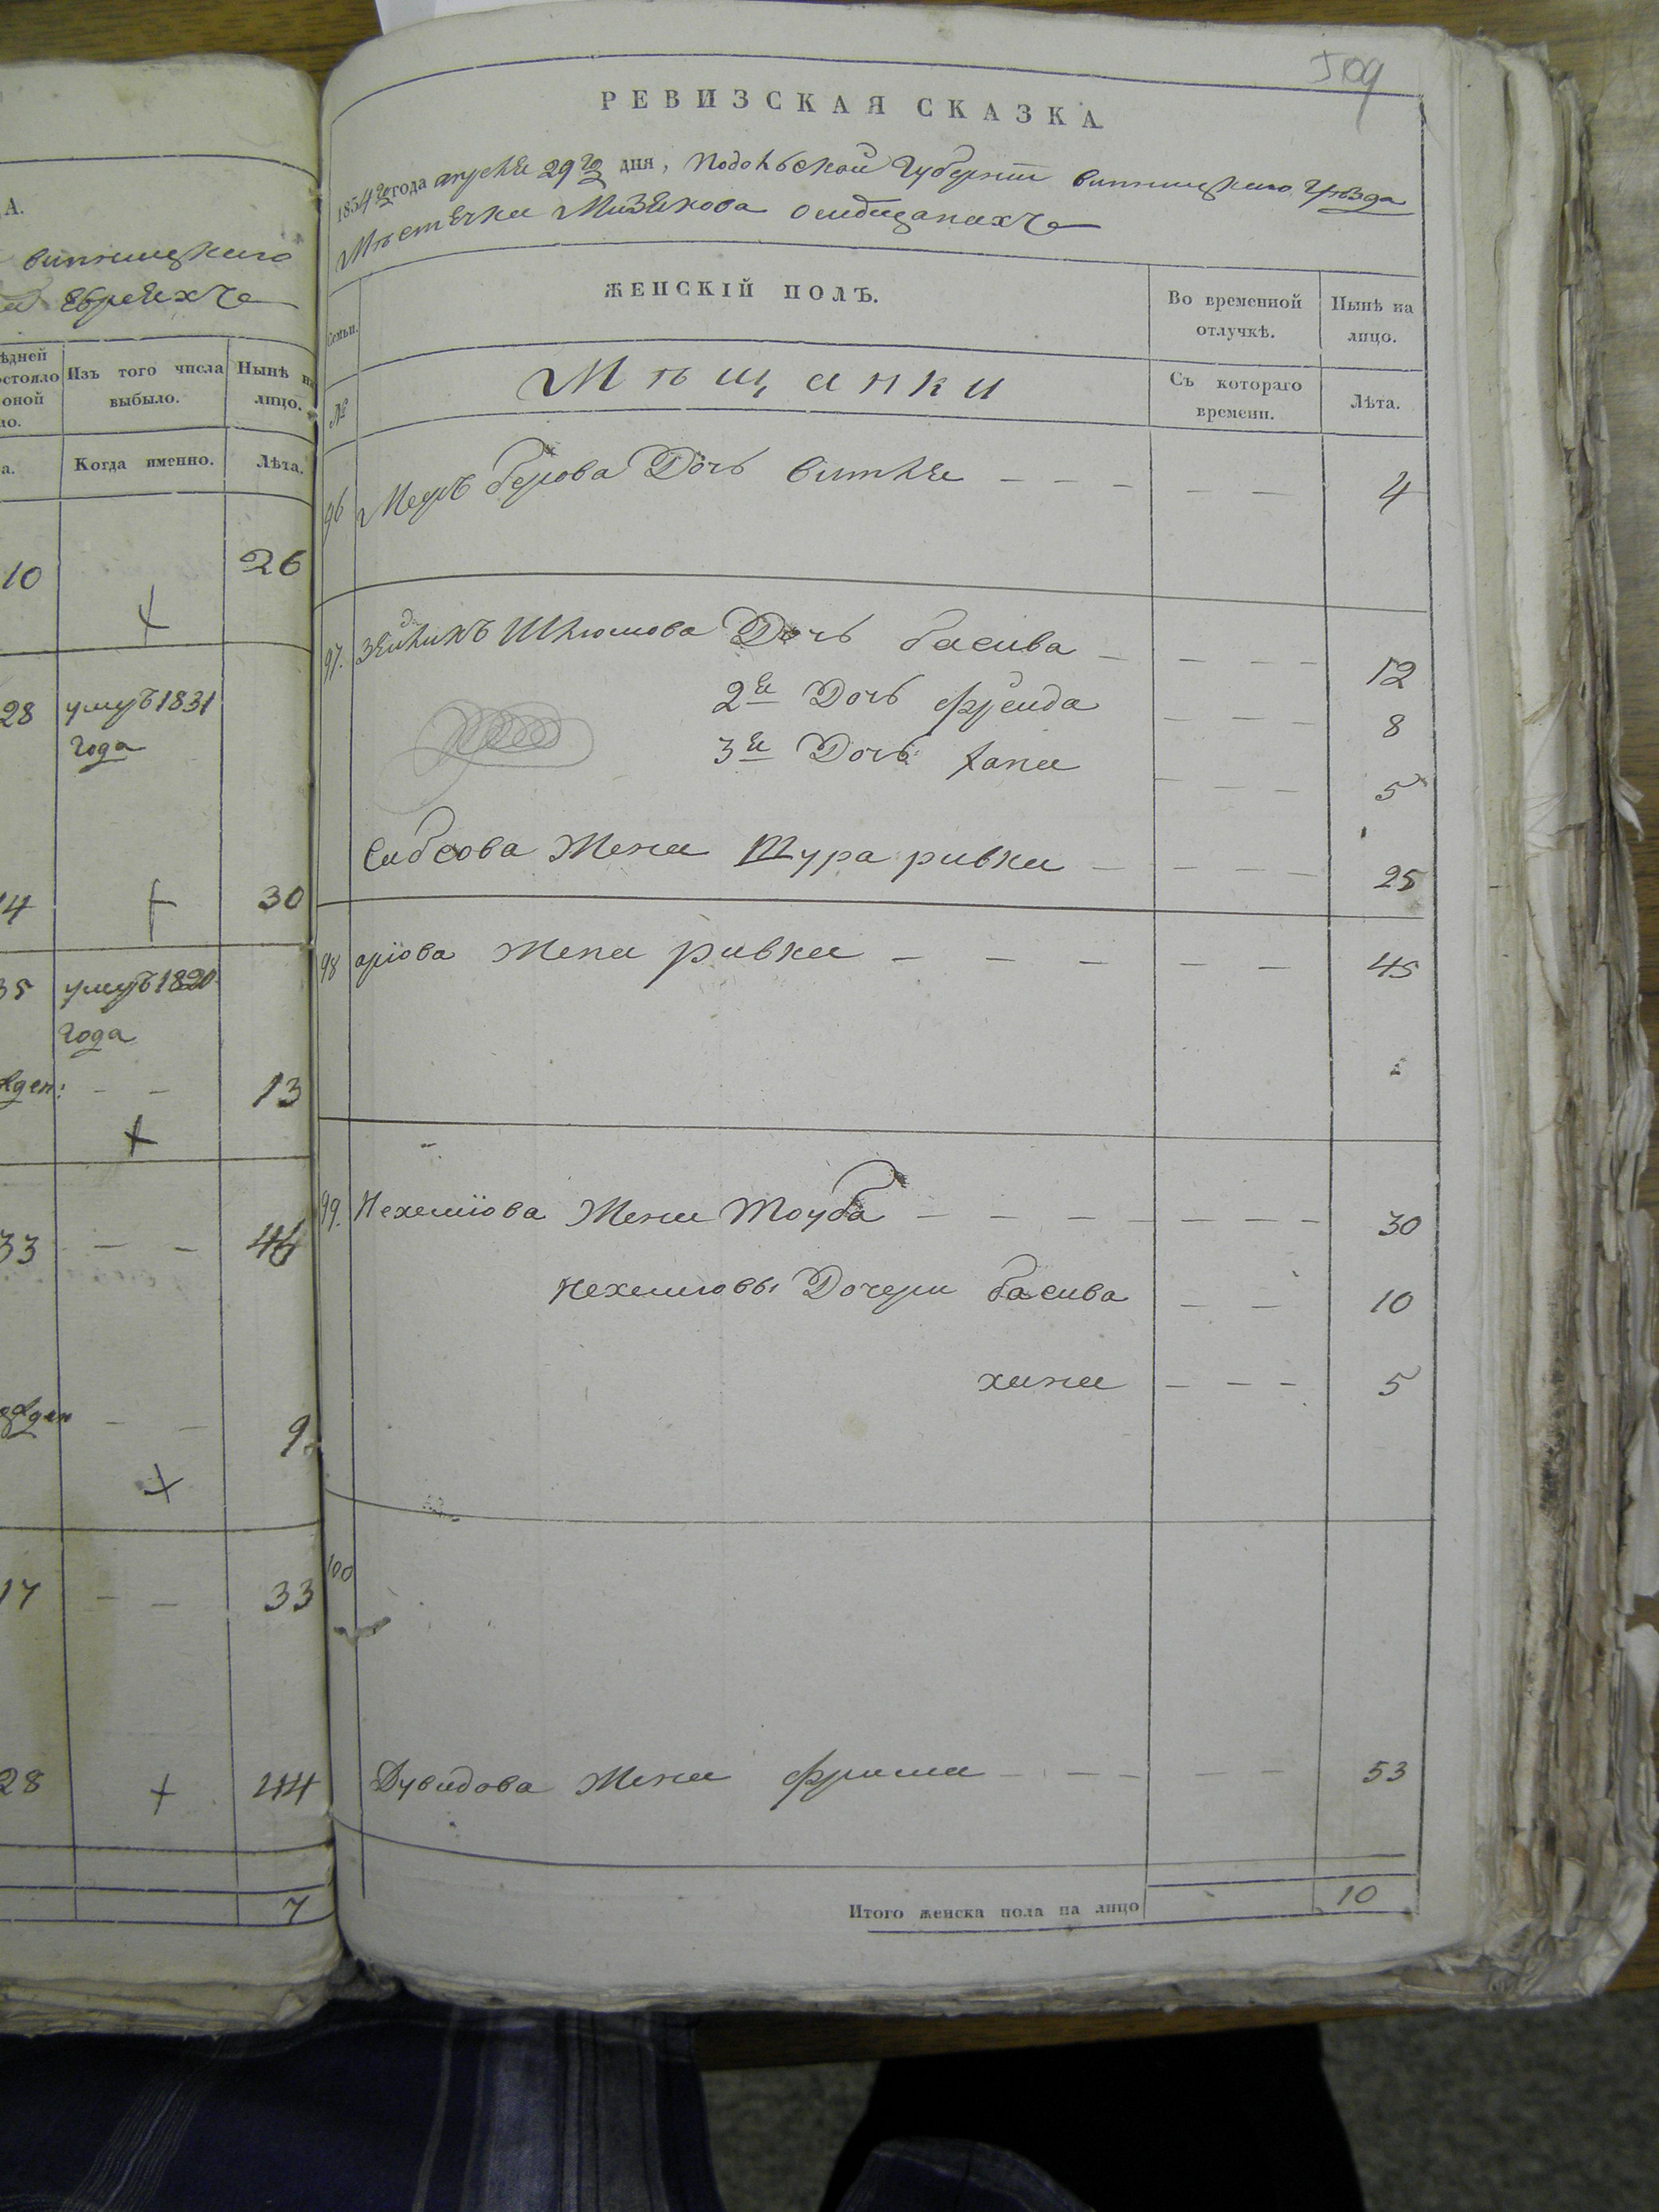 А.
винницкаго
Евреяхъ
ѣдней
остояло
оной
ло.
Изъ того числа
выбыло.
Нынѣ на
лицо.
а.
Когда именно.
Лѣта.
10
26
28 умръ 1831
года
14
30
35 умръ 1820
года
13
33 — — 46
— — 9
17 — — 33
28
44
7
509
РЕВИЗСКАЯ СКАЗКА
1854го года апреля 29го дня, Подольской Губернiи винницкаго уѣзда
Мѣстечка Мизякова о мѣщанахъ
Семьи.
ЖЕНСКІЙ ПОЛЪ.
Во временной
отлучкѣ.
Нынѣ на
лицо.
№
Мѣщанки
Съ котораго
времени.
Лѣта.
96 Меръ берова Дочь витля — — — — — 4
97. Зейликъ Шлюмова Дочь басива — — — — 12
2я Дочь фрейда — — — 8
3я Дочь хана — — — 5
Сабсова Жена Шура ривка — — — — 25
98 арiова Жена ривка — — — — — 45
99. Нехемiова Жена Тоуба — — — — — — — 30
Нехемiовы Дочери басива — — 10
хана — — — 5
100
Дувидова Жена фрима — — — — — 53
Итого женска пола на лицо
10